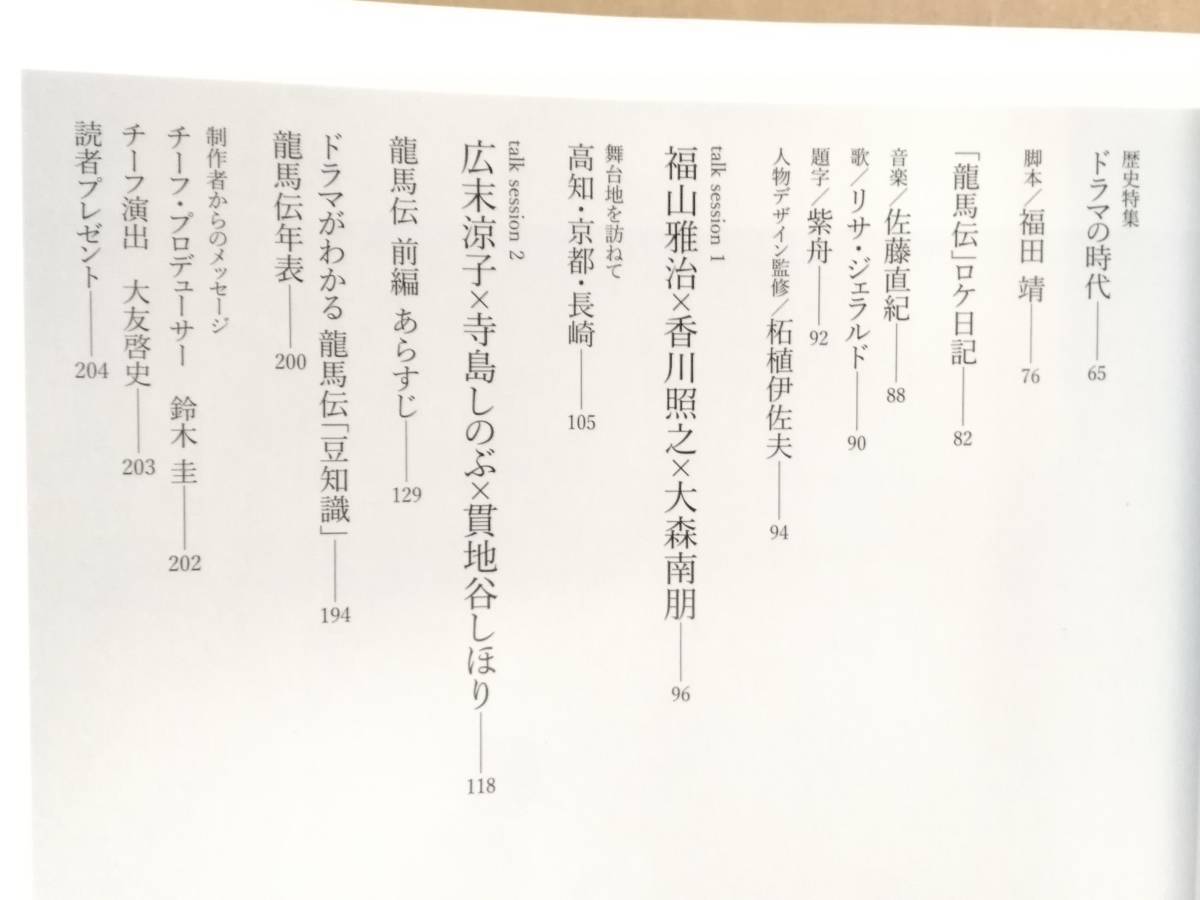 歴史特集
ドラマの時代——65
脚本／福田 靖——76
「龍馬伝」ロケ日記——82
音楽／佐藤直紀——88
歌／リサ・ジェラルド——90
題字／紫舟——92
人物デザイン監修／柘植伊佐夫——94
talk session 1
福山雅治×香川照之×大森南朋——96
舞台地を訪ねて
高知・京都・長崎——105
talk session 2
広末涼子×寺島しのぶ×貫地谷しほり——118
龍馬伝 前編 あらすじ——129
ドラマがわかる 龍馬伝「豆知識」——194
龍馬伝年表——200
制作者からのメッセージ
チーフ・プロデューサー 鈴木 圭——202
チーフ演出 大友啓史——203
読者プレゼント——204